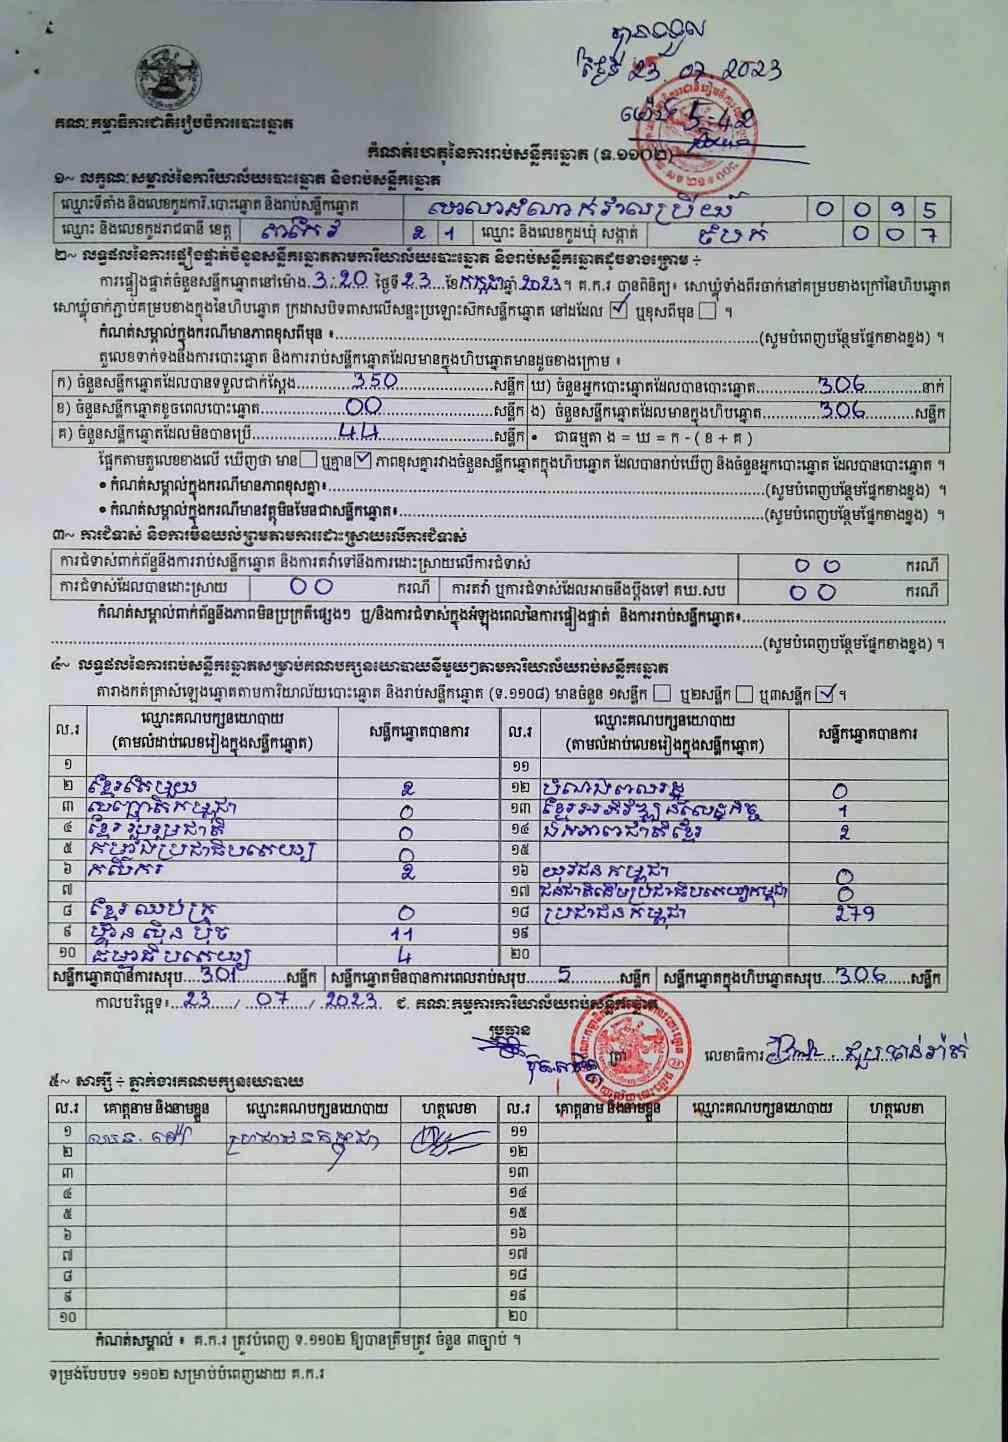 បានទទួល
ថ្ងៃទី 23.07.2023
ម៉ោង 5-42
គណៈកម្មាធិការជាតិរៀបចំការបោះឆ្នោត
កំណត់ហេតុនៃការរាប់សន្លឹកឆ្នោត (ទ.១១០២)
១~ លក្ខណៈសម្គាល់នៃការិយាល័យបោះឆ្នោត និងរាប់សន្លឹកឆ្នោត
ឈ្មោះទីតាំង និងលេខកូដការិ.បោះឆ្នោត និងរាប់សន្លឹកឆ្នោត 0 0 9 5
ឈ្មោះ និងលេខកូដរាជធានី ខេត្ត តាកែវ 2 1 ឈ្មោះ និងលេខកូដឃុំ សង្កាត់ ចំបក់ 0 0 7
២~ លទ្ធផលនៃការផ្ទៀងផ្ទាត់ចំនួនសន្លឹកឆ្នោតតាមការិយាល័យបោះឆ្នោត និងរាប់សន្លឹកឆ្នោតដូចខាងក្រោម ÷
ការផ្ទៀងផ្ទាត់ចំនួនសន្លឹកឆ្នោតនៅម៉ោង 3:20 ថ្ងៃទី 23 ខែ កក្កដា ឆ្នាំ 2023។ គ.ក.រ បានពិនិត្យ៖ សោឃ្លុំទាំងពីរចាក់នៅគម្របខាងក្រៅនៃហិបឆ្នោត
សោឃ្លុំចាក់ភ្ជាប់គម្របខាងក្នុងនៃហិបឆ្នោត ក្រដាសបិទពាសលើសន្ទះប្រឡោះស៊កសន្លឹកឆ្នោត នៅដដែល ☑ ឬខុសពីមុន ☐ ។
កំណត់សម្គាល់ក្នុងករណីមានភាពខុសពីមុន ៖ (សូមបំពេញបន្ថែមផ្នែកខាងខ្នង) ។
តួលេខទាក់ទងនឹងការបោះឆ្នោត និងការរាប់សន្លឹកឆ្នោតដែលមានក្នុងហិបឆ្នោតមានដូចខាងក្រោម ៖
ក) ចំនួនសន្លឹកឆ្នោតដែលបានទទួលជាក់ស្តែង 350 សន្លឹក ឃ) ចំនួនអ្នកបោះឆ្នោតដែលបានបោះឆ្នោត 306 នាក់
ខ) ចំនួនសន្លឹកឆ្នោតខូចពេលបោះឆ្នោត 00 សន្លឹក ង) ចំនួនសន្លឹកឆ្នោតដែលមានក្នុងហិបឆ្នោត 306 សន្លឹក
គ) ចំនួនសន្លឹកឆ្នោតដែលមិនបានប្រើ 44 សន្លឹក • ជាធម្មតា ង = ឃ = ក - ( ខ + គ )
ផ្អែកតាមតួលេខខាងលើ ឃើញថា មាន ☐ ឬគ្មាន ☑ ភាពខុសគ្នារវាងចំនួនសន្លឹកឆ្នោតក្នុងហិបឆ្នោត ដែលបានរាប់ឃើញ និងចំនួនអ្នកបោះឆ្នោត ដែលបានបោះឆ្នោត ។
• កំណត់សម្គាល់ក្នុងករណីមានភាពខុសគ្នា៖ (សូមបំពេញបន្ថែមផ្នែកខាងខ្នង) ។
• កំណត់សម្គាល់ក្នុងករណីមានវត្ថុមិនមែនជាសន្លឹកឆ្នោត៖ (សូមបំពេញបន្ថែមផ្នែកខាងខ្នង) ។
៣~ ការជំទាស់ និងការមិនយល់ព្រមតាមការដោះស្រាយលើការជំទាស់
ការជំទាស់ពាក់ព័ន្ធនឹងការរាប់សន្លឹកឆ្នោត និងការតវ៉ាទៅនឹងការដោះស្រាយលើការជំទាស់ 0 0 ករណី
ការជំទាស់ដែលបានដោះស្រាយ 0 0 ករណី ការតវ៉ា ឬការជំទាស់ដែលអាចនឹងប្តឹងទៅ គឃ.សប 0 0 ករណី
កំណត់សម្គាល់ពាក់ព័ន្ធនឹងភាពមិនប្រក្រតីផ្សេងៗ ឬ/និងការជំទាស់ក្នុងអំឡុងពេលនៃការផ្ទៀងផ្ទាត់ និងការរាប់សន្លឹកឆ្នោត៖
(សូមបំពេញបន្ថែមផ្នែកខាងខ្នង) ។
៤~ លទ្ធផលនៃការរាប់សន្លឹកឆ្នោតសម្រាប់គណបក្សនយោបាយនីមួយៗតាមការិយាល័យរាប់សន្លឹកឆ្នោត
តារាងកត់ត្រាសំឡេងឆ្នោតតាមការិយាល័យបោះឆ្នោត និងរាប់សន្លឹកឆ្នោត (ទ.១១០៨) មានចំនួន ១សន្លឹក ☐ ឬ២សន្លឹក ☐ ឬ៣សន្លឹក ☑ ។
ល.រ ឈ្មោះគណបក្សនយោបាយ (តាមលំដាប់លេខរៀងក្នុងសន្លឹកឆ្នោត) សន្លឹកឆ្នោតបានការ ល.រ ឈ្មោះគណបក្សនយោបាយ (តាមលំដាប់លេខរៀងក្នុងសន្លឹកឆ្នោត) សន្លឹកឆ្នោតបានការ
១ ១១
២ ខ្មែរតែមួយ 2 ១២ បំណងពលរដ្ឋ 0
៣ សញ្ជាតិកម្ពុជា 0 ១៣ ខ្មែរអភិវឌ្ឍន៍សេដ្ឋកិច្ច 1
៤ ខ្មែររួបរួមជាតិ 0 ១៤ ឯកភាពជាតិខ្មែរ 2
៥ កម្លាំងប្រជាធិបតេយ្យ 0 ១៥
៦ កសិករ 2 ១៦ យុវជនកម្ពុជា 0
៧ ១៧ ជនជាតិដើមប្រជាធិបតេយ្យកម្ពុជា 0
៨ ខ្មែរឈប់ក្រ 0 ១៨ ប្រជាជនកម្ពុជា 279
៩ ហ៊្វុនស៊ិនប៉ិច 11 ១៩
១០ ធម្មាធិបតេយ្យ 4 ២០
សន្លឹកឆ្នោតបានការសរុប 301 សន្លឹក សន្លឹកឆ្នោតមិនបានការពេលរាប់សរុប 5 សន្លឹក សន្លឹកឆ្នោតក្នុងហិបឆ្នោតសរុប 306 សន្លឹក
កាលបរិច្ឆេទ៖ 23 / 07 / 2023 ជ. គណៈកម្មការការិយាល័យរាប់សន្លឹកឆ្នោត
ប្រធាន
ត្រា លេខាធិការ
៥~ សាក្សី ÷ ភ្នាក់ងារគណបក្សនយោបាយ
ល.រ គោត្តនាម និងនាមខ្លួន ឈ្មោះគណបក្សនយោបាយ ហត្ថលេខា ល.រ គោត្តនាម និងនាមខ្លួន ឈ្មោះគណបក្សនយោបាយ ហត្ថលេខា
១ ប្រជាជនកម្ពុជា ១១
២ ១២
៣ ១៣
៤ ១៤
៥ ១៥
៦ ១៦
៧ ១៧
៨ ១៨
៩ ១៩
១០ ២០
កំណត់សម្គាល់ ៖ គ.ក.រ ត្រូវបំពេញ ទ.១១០២ ឱ្យបានត្រឹមត្រូវ ចំនួន ៣ច្បាប់ ។
ទម្រង់បែបបទ ១១០២ សម្រាប់បំពេញដោយ គ.ក.រ